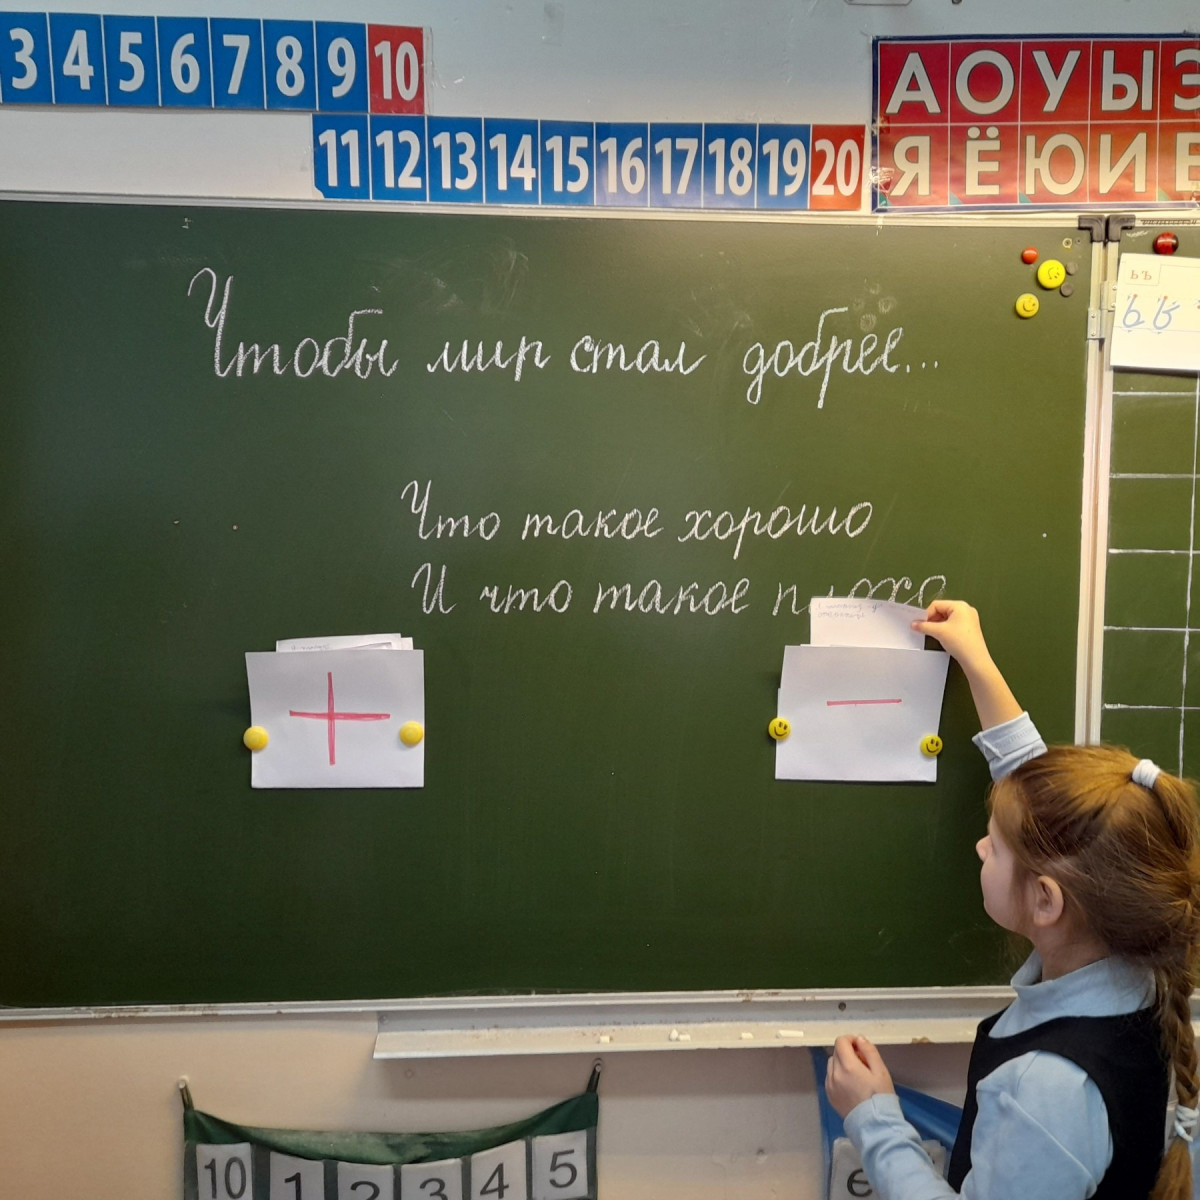 3 4 5 6 7 8 9 10
11 12 13 14 15 16 17 18 19 20
А О У Ы Э
Я Ё Ю И Е
ь ъ
ь ъ
Чтобы мир стал добрее...
Что такое хорошо
И что такое плохо
+
−
10 1 2 3 4 5
6